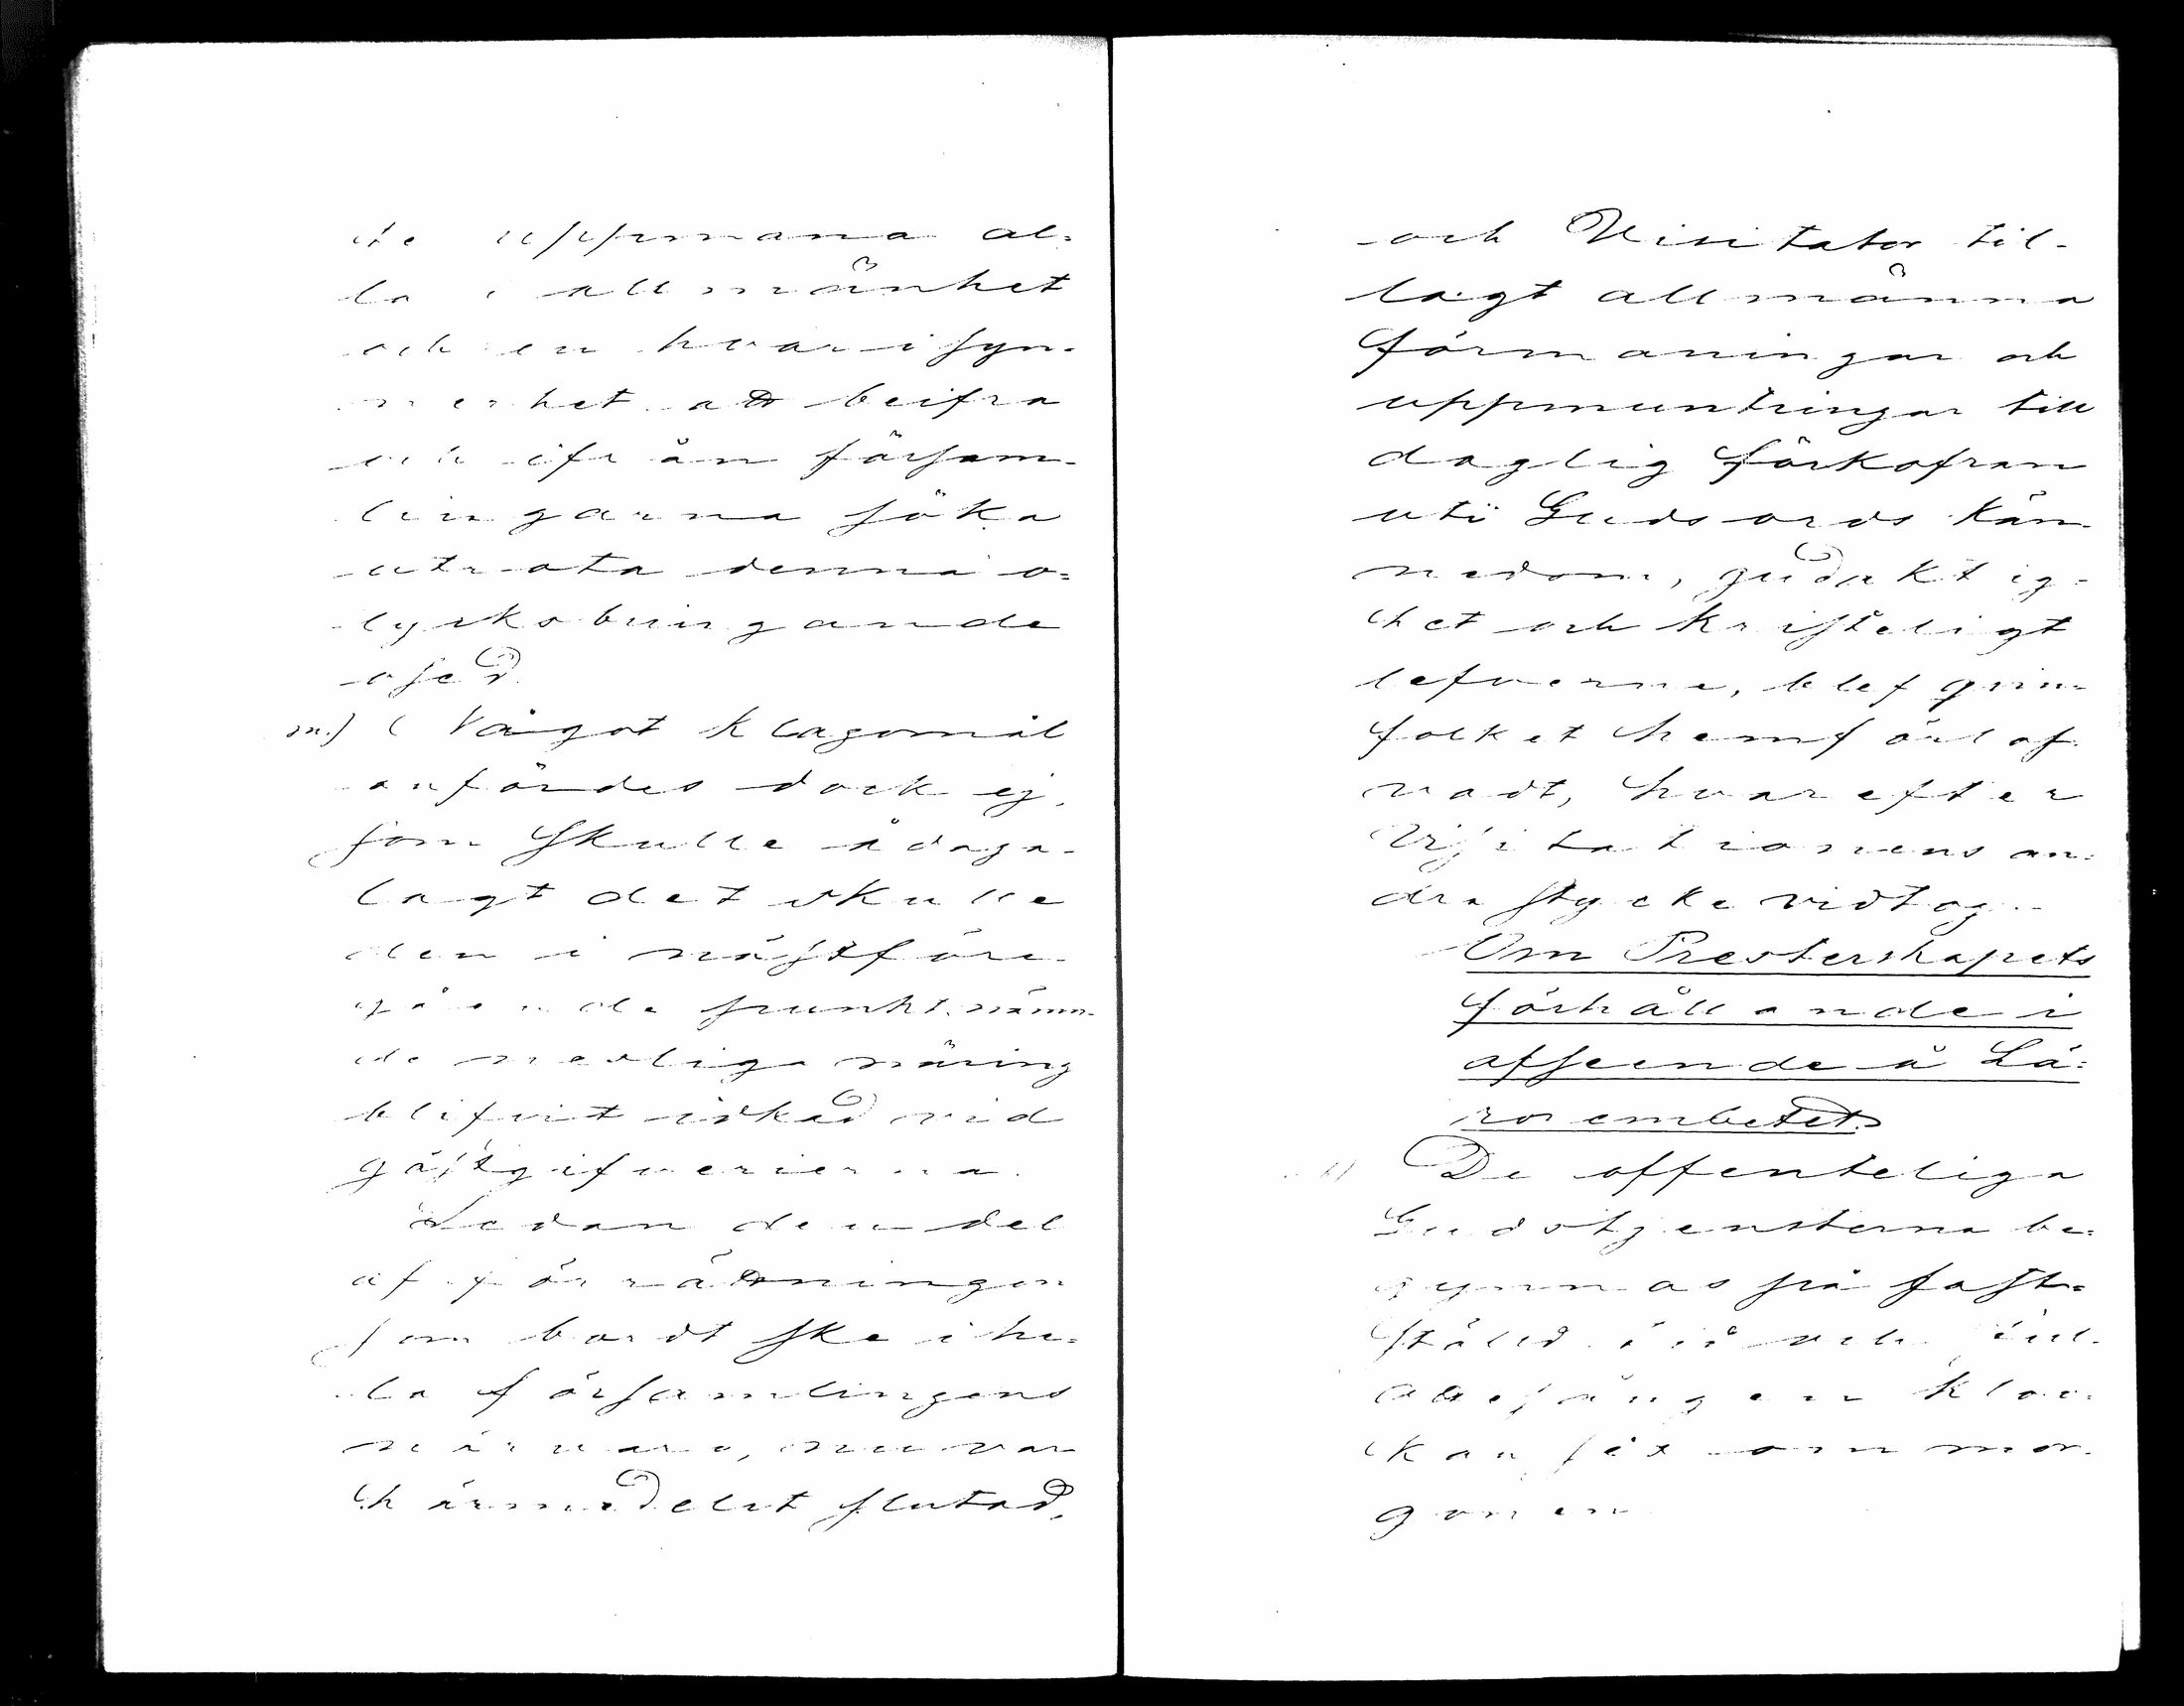 de uppmana al=
la i allmänhet
och en hvar i syn-
nerhet att beifra
och ifrån försam-
lingarna söka
utrota denna o=
lycksbringande
osed.
m.) Något klagomål
anfördes dock ej,
som skulle ådaga-
lagt det skulle
den i nästföre-
gående punkt nämn-
de nedliga näring
blifvit idkad vid
gästgifverierna.
Sedan den del
af förrättningen
som bordt ske i he=
la församlingens
närvaro, nu var
härmedelst slutad,
och Visitator til-
lagt allmänna
förmaningar och
uppmuntringar till
daglig förkofran
uti Guds ords kän-
nedom, gudaktig-
het och kristeligt
lefverne, blef qvin-
folket hemförlof-
vadt, hvarefter
Visitationens an=
dra stycke vidtog.-
Om Presterskapets
förhållande i
afseende å Lä=
roembetet.
1) De offenteliga
Gudstjensterna be=
gynnas på fast-
stäld tid och
ottesången kloc-
kan sex om mor-
gonen